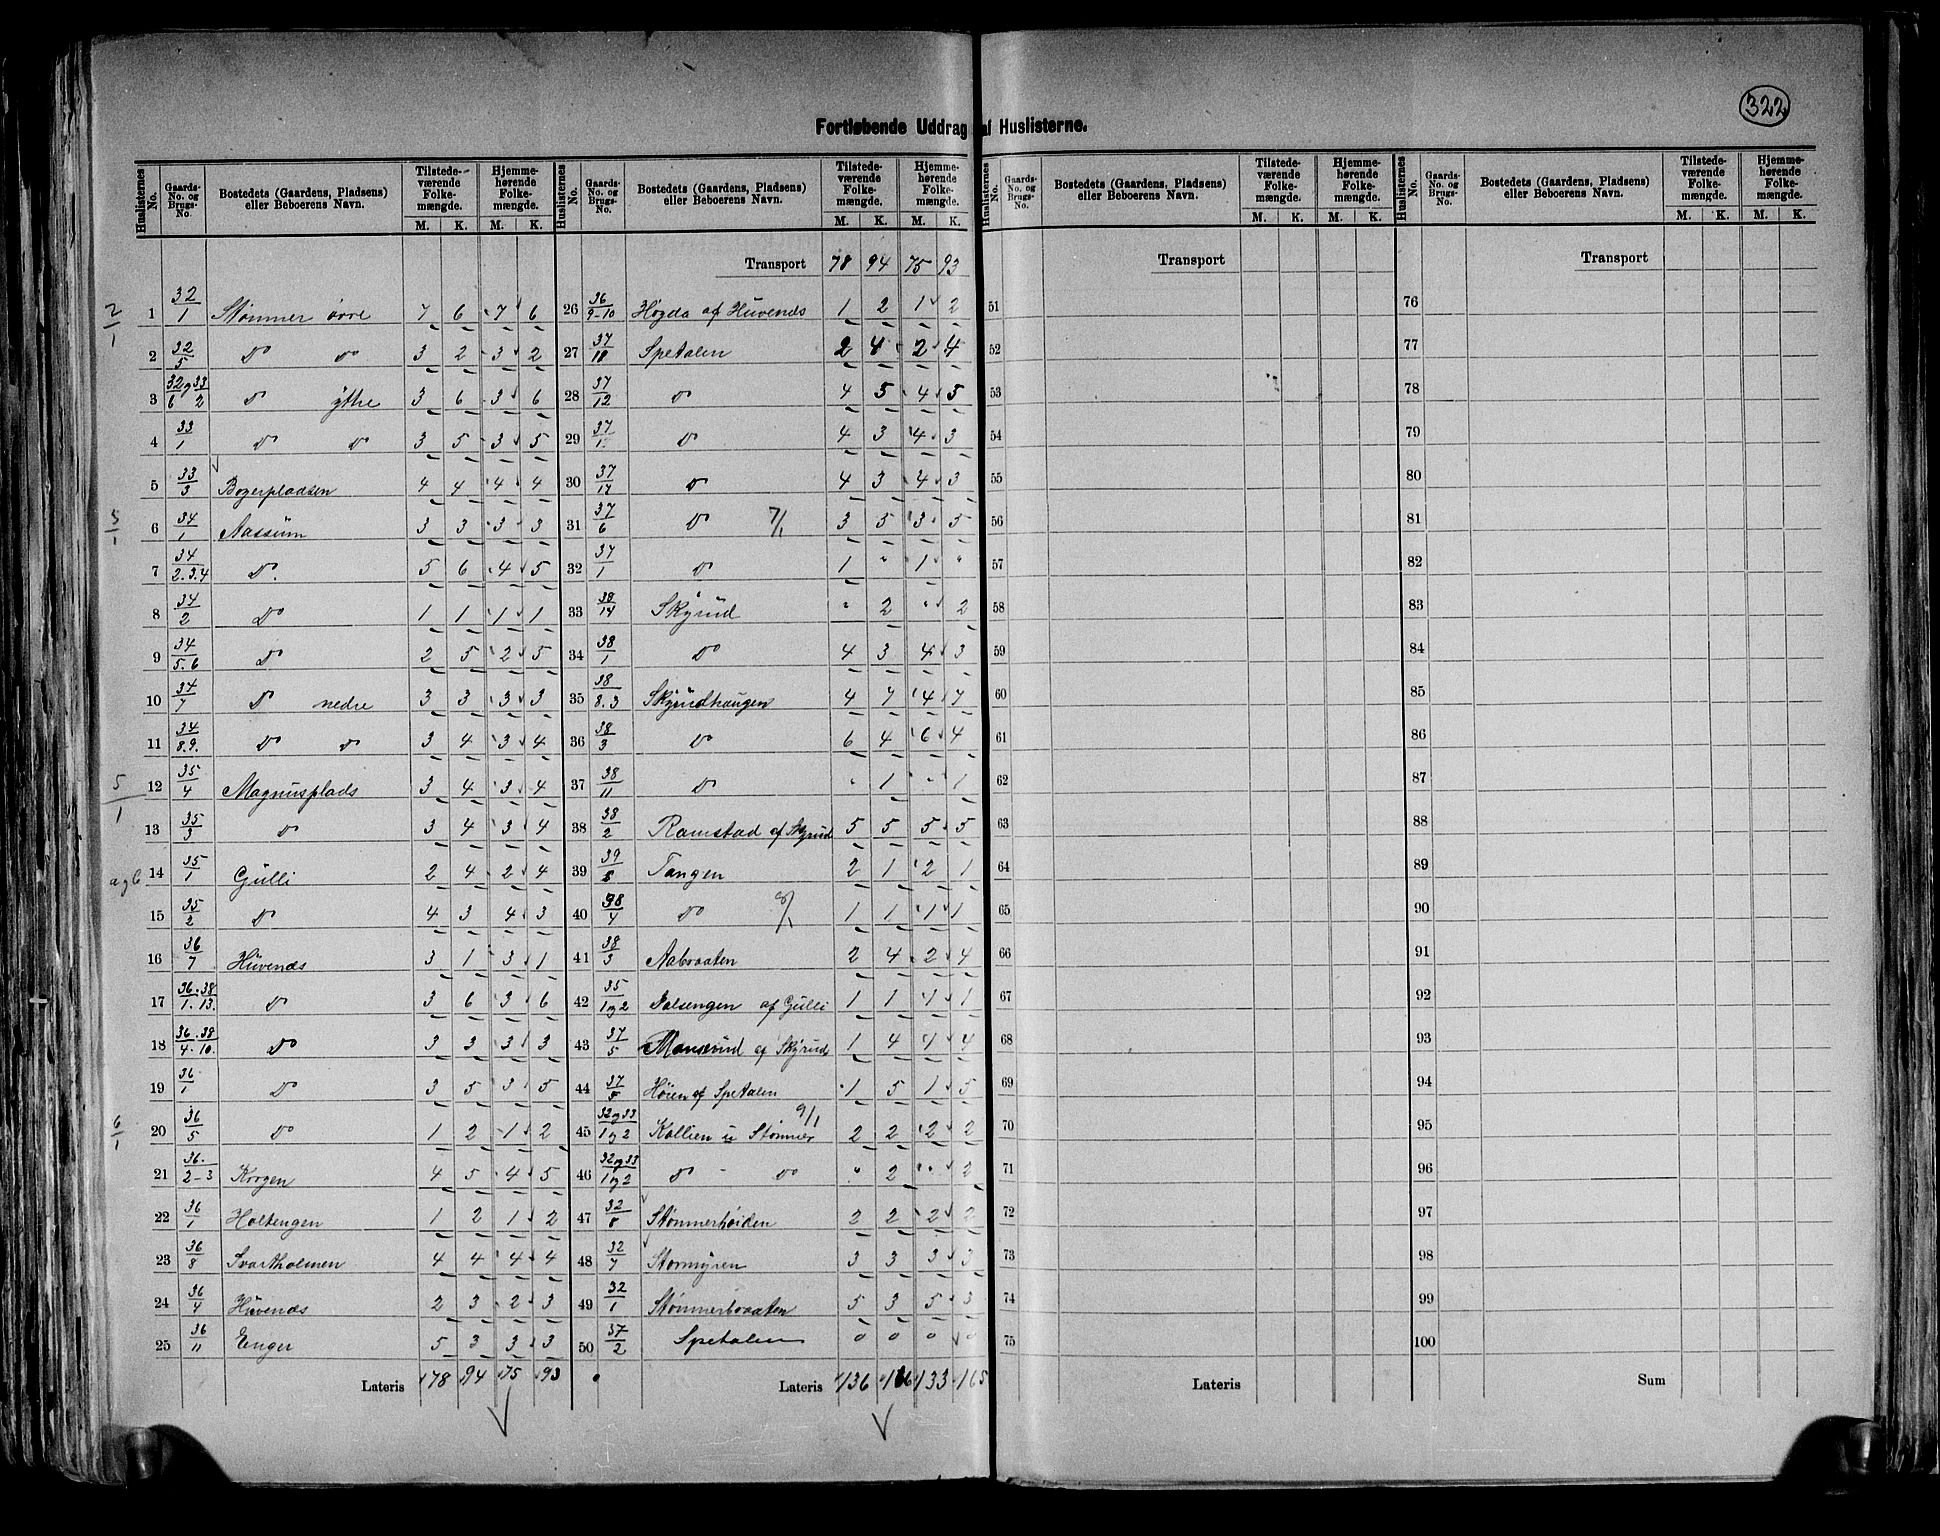 322
Fortløbende Uddrag af Huslisterne.
Huslisternes No. | Gaards-No. og Brugs-No. | Bostedets (Gaardens, Pladsens) eller Beboerens Navn. | Tilstedeværende Folkemængde. M. K. | Hjemmehørende Folkemængde. M. K.
2/1
1 32/1 Stømmer øvre 7 6 7 6
2 32/5 Do Do 3 2 3 2
3 32og33/6 2 Do ytre 3 6 3 6
4 33/1 Do Do 3 5 3 5
5 33/3 Bogerpladsen 4 4 4 4
6 34/1 Aassum 3 3 3 3
7 34/2.3.4 Do. 5 6 4 5
8 34/2 Do 1 1 1 1
9 34/5.6 Do 2 5 2 5
10 34/7 Do nedre 3 3 3 3
11 34/8.9. Do Do 3 4 3 4
5/1
12 35/4 Magnusplads 3 4 3 4
13 35/3 Do 3 4 3 4
14 35/1 Gulli 2 4 2 4
15 35/2 Do 4 3 4 3
16 36/7 Huvenes 3 1 3 1
17 36.38/1.13. Do 3 6 3 6
18 36.38/4.10. Do 3 3 3 3
19 36/1 Do 3 5 3 5
6/1
20 36/5 Do 1 2 1 2
21 36./2-3 Krogen 4 5 4 5
22 36/1 Holtengen 1 2 1 2
23 36/8 Svartholmen 4 4 4 4
24 36/4 Huvenes 2 3 2 3
25 36/11 Enger 5 3 3 3
Lateris 78 94 75 93
Transport 78 94 75 93
26 36/9-10 Høgda af Huvenes 1 2 1 2
27 37/18 Spetalen 2 4 2 4
28 37/12 Do 4 5 4 5
29 37 Do 4 3 4 3
30 37/17 Do 4 3 4 3
31 37/6 Do 7/1 3 5 3 5
32 37/1 Do 1 " 1 "
33 38/14 Skjrud " 2 " 2
34 38/1 Do 4 3 4 3
35 38/8.3 Skjrudhaugen 4 7 4 7
36 38/3 Do 6 4 6 4
37 38/11 Do " 1 " 1
38 38/2 Ramstad af Skjrud 5 5 5 5
39 39 Tangen 2 1 2 1
40 38/4 Do 8/1 1 1 1 1
41 38/3 Aabraaten 2 4 2 4
42 35/1og2 Dalsengen af Gulli 1 1 1 1
43 37/5 af Skjrud 1 4 1 4
44 37 Høien af Spetalen 1 5 1 5
9/1
45 32og33/1og2 Kollien u Stømner 2 2 2 2
46 32og33/1og2 Do - Do " 2 " 2
47 32/8 Stømnerhøiden 2 2 2 2
48 32/7 Stormyren 3 3 3 3
49 32/1 Stømnerbraaten 5 3 5 3
50 37/2 Spetalen 0 0 0 0
Lateris 136 166 133 165
Huslisternes No. | Gaards-No. og Brugs-No. | Bostedets (Gaardens, Pladsens) eller Beboerens Navn. | Tilstedeværende Folkemængde. M. K. | Hjemmehørende Folkemængde. M. K.
Transport
51
52
53
54
55
56
57
58
59
60
61
62
63
64
65
66
67
68
69
70
71
72
73
74
75
Lateris
Transport
76
77
78
79
80
81
82
83
84
85
86
87
88
89
90
91
92
93
94
95
96
97
98
99
100
Sum